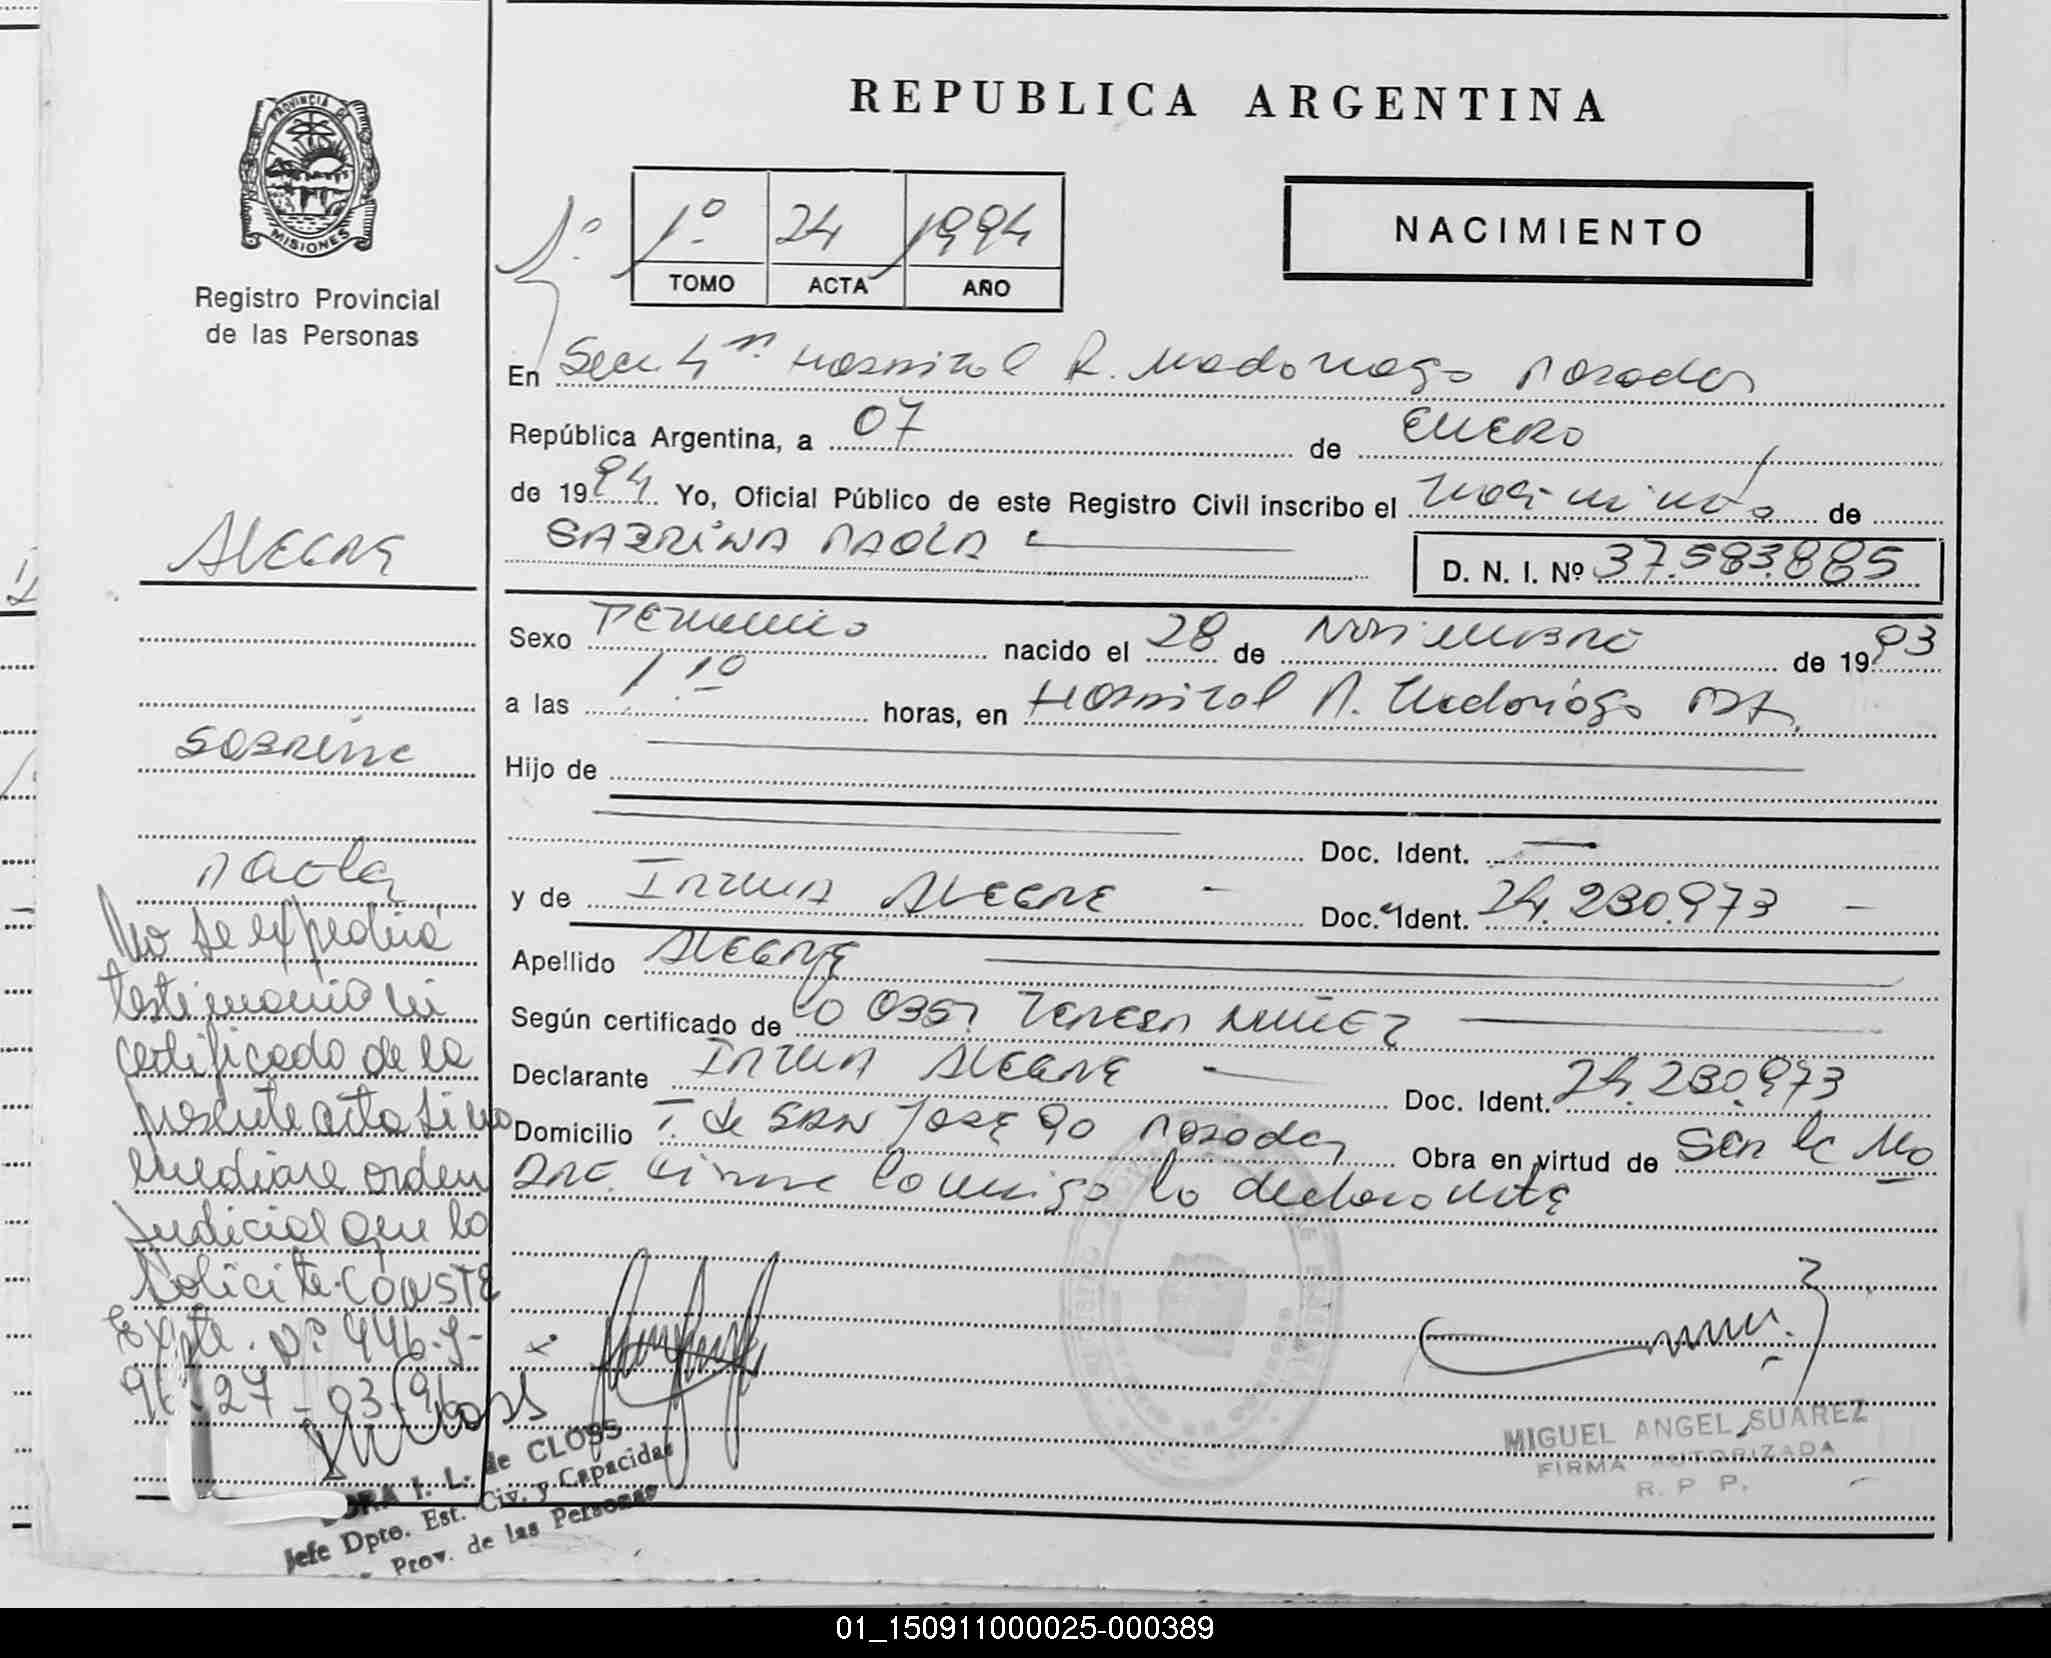 REPUBLICA ARGENTINA
PROVINCIA DE
MISIONES
Registro Provincial
de las Personas
1º
1º 24 1994
TOMO ACTA AÑO
NACIMIENTO
En Secc 4ta. Hospital R. Madariaga Posadas
República Argentina, a 07 de ENERO
de 1994 Yo, Oficial Público de este Registro Civil inscribo el de
SABRINA PAOLA
D. N. I. Nº 37.583.885
Sexo Femenino nacido el 28 de Noviembre de 1993
a las 1.10 horas, en Hospital R. Madariaga
Hijo de
Doc. Ident.
y de ALEGRE Doc. Ident. 24.230.973
Apellido ALEGRE
Según certificado de la Obst. TERESA NUÑEZ
Declarante ALEGRE Doc. Ident. 24.230.973
Domicilio T. de SAN JOSE 90 Posadas Obra en virtud de Ser la Ma
DRE. Firma conmigo la declarante
ALEGRE
SABRINA
PAOLA
No se expedirá
testimonio ni
certificado de la
presente acta si no
mediare orden
Judicial que lo
solicite. CONSTE
Expte. Nº 446-J-
96 - 27-03-96
I. L. de CLOSS
Jefe Dpto. Est. Civ. y Capacidad
Prov. de las Personas
MIGUEL ANGEL SUAREZ
FIRMA AUTORIZADA
R. P. P.
01_150911000025-000389